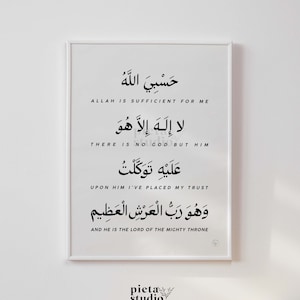 حَسْبِيَ اللَّهُ
ALLAH IS SUFFICIENT FOR ME
لا إِلَـهَ إِلاَّ هُوَ
THERE IS NO GOD BUT HIM
عَلَيْهِ تَوَكَّلْتُ
UPON HIM I'VE PLACED MY TRUST
وَهُوَ رَبُّ الْعَرْشِ الْعَظِيمِ
AND HE IS THE LORD OF THE MIGHTY THRONE
pieta
studio